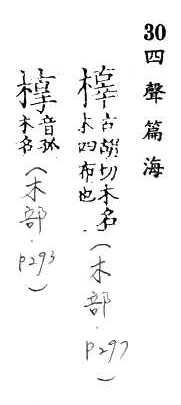 30 四聲篇海
橭古胡切木名
木四布也 (木部.P297)
音孤木名 (木部.P293)